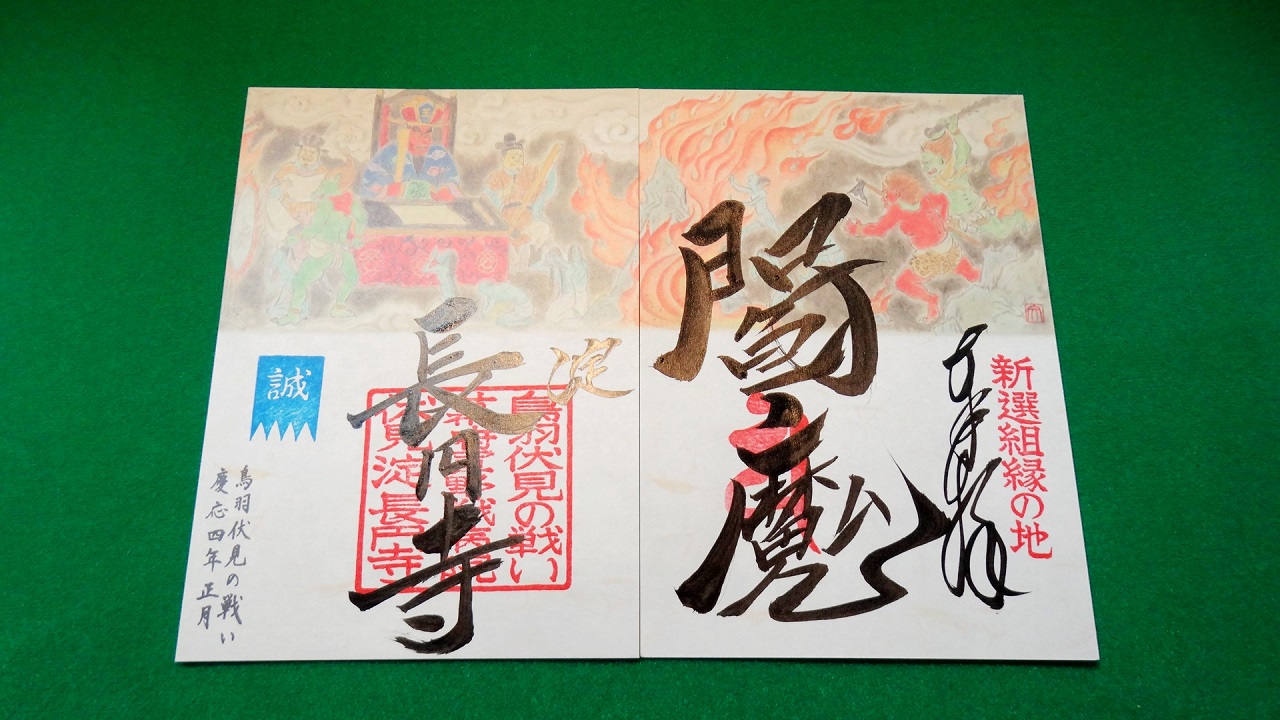 新選組縁の地
奉拝
閻魔
淀
長円寺
鳥羽伏見の戦い
幕府軍野戦病院
伏見淀長円寺
誠
鳥羽伏見の戦い
慶応四年正月